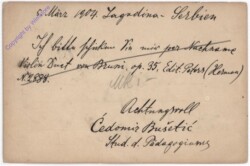 März 1904. Jagodina – Serbien
Ich bitte schicken Sie mir per Nachname
Violin Duet von Bruni, op. 35, Edit. Peters (Herman)
Achtungsvoll
Čedomir Bušetić
Stud. d. Pedagogiums